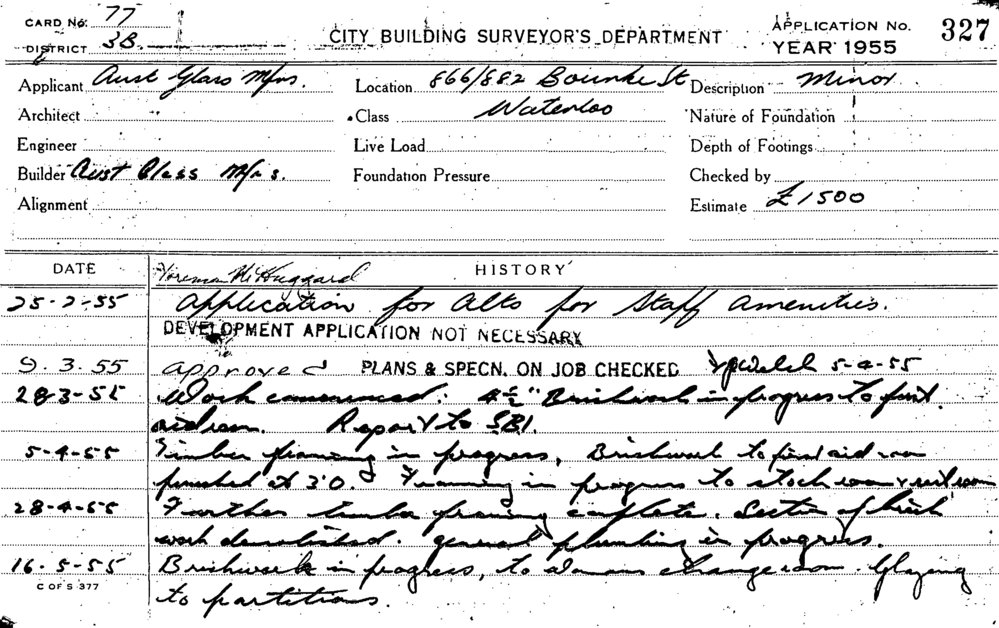 CARD No. 77
DISTRICT 3B.
CITY BUILDING SURVEYOR'S DEPARTMENT
APPLICATION No. 327
YEAR 1955
Applicant Aust Glass Mfrs. Location 866/882 Bourke St Description Minor
Architect Class Waterloo Nature of Foundation
Engineer Live Load Depth of Footings
Builder Aust Glass Mfrs. Foundation Pressure Checked by
Alignment Estimate £1500
DATE Foreman McHuggard HISTORY
25-2-55 Application for Alts for Staff amenities.
DEVELOPMENT APPLICATION NOT NECESSARY
9.3.55 approved PLANS & SPECN. ON JOB CHECKED Welch 5-4-55
28-3-55 Work commenced: 4½" Brickwork in progress to first
aid room. Report to SBI.
5-4-55 Timber framing in progress, Brickwork to first aid room
finished at 3'0. Framing in progress to stock room & rest room
28-4-55 Further timber framing complete. Section of brick
work demolished. general plumbing in progress.
16-5-55 Brickwork in progress, to womans change room. Glazing
to partitions.
C OF S 377